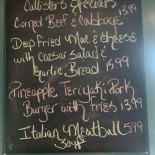 Callister's Specials
Corned Beef & Cabbage
13.99
Deep Fried Mac & cheese
with Caesar Salad &
Garlic Bread 13.99
Pineapple Teriyaki Pork
Burger with fries 13.99
Italian Meatball 5.99
Soup